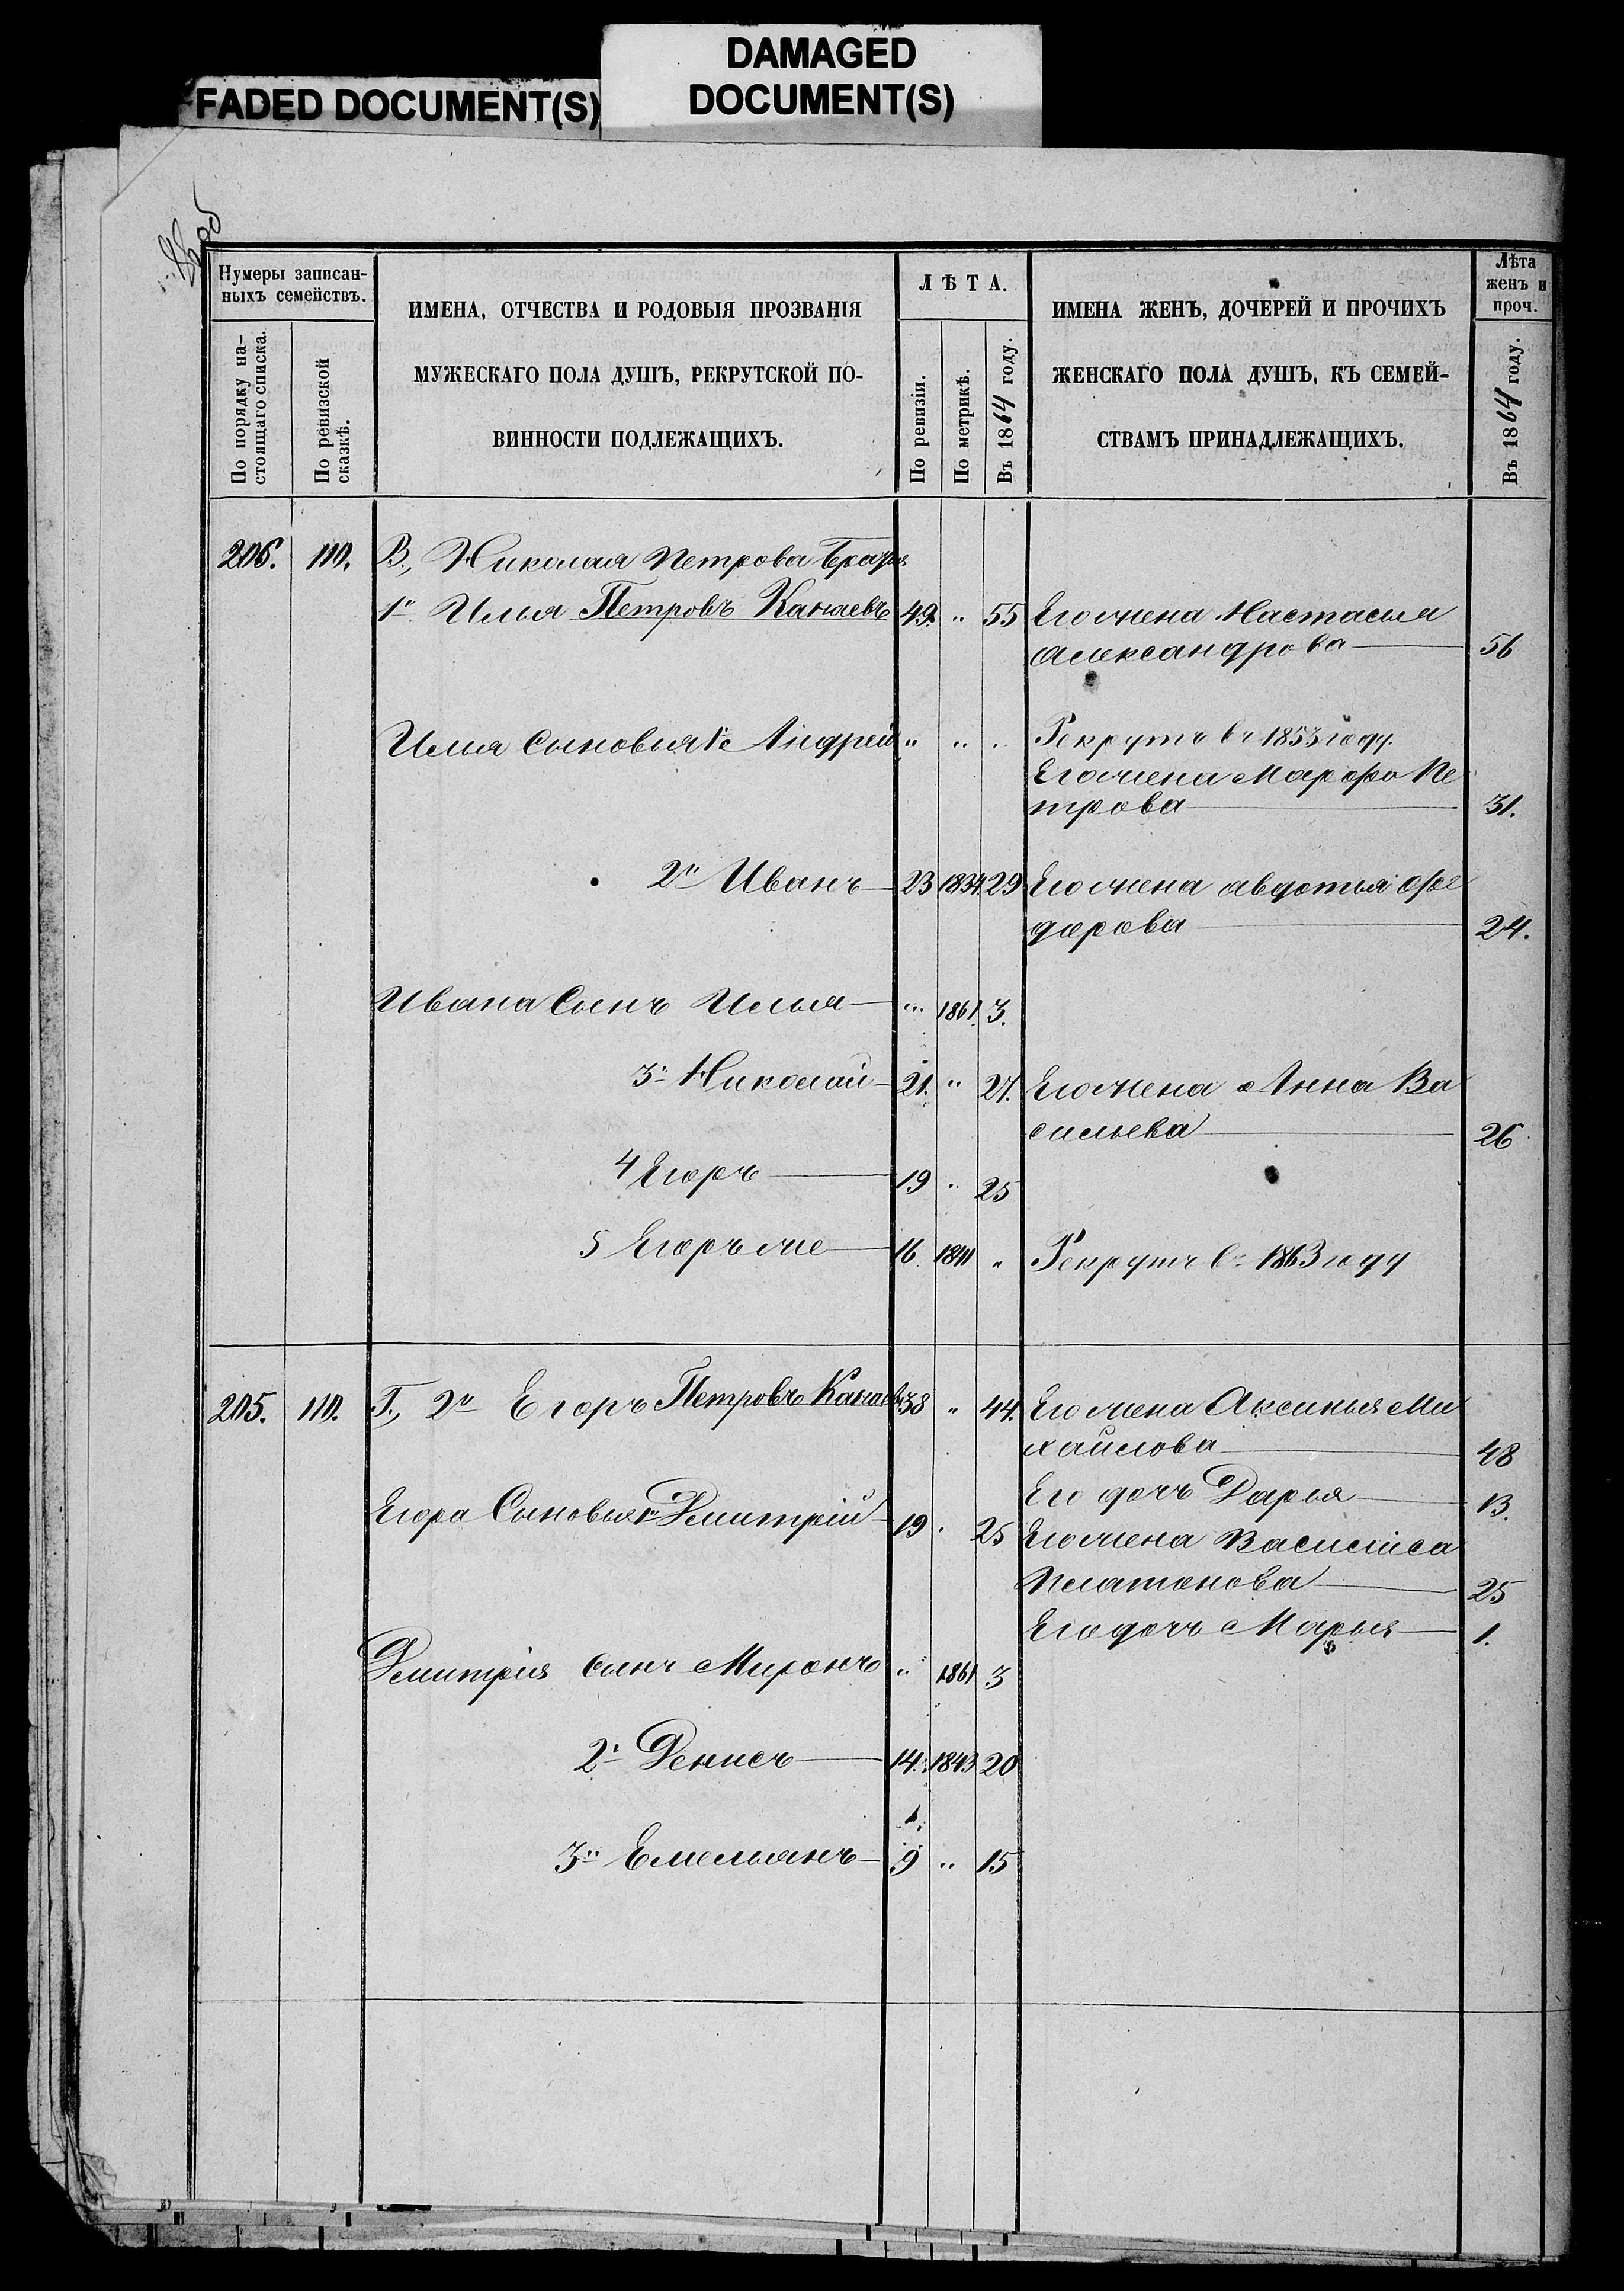 FADED DOCUMENT(S)
DAMAGED
DOCUMENT(S)
Нумеры записан-
ныхъ семействъ.
По порядку на-
стоящаго списка.
По ревизской
сказкѣ.
ИМЕНА, ОТЧЕСТВА И РОДОВЫЯ ПРОЗВАНІЯ
МУЖЕСКАГО ПОЛА ДУШЪ, РЕКРУТСКОЙ ПО-
ВИННОСТИ ПОДЛЕЖАЩИХЪ.
ЛѢТА.
По ревизіи.
По метрикѣ.
Въ 1864 году.
ИМЕНА ЖЕНЪ, ДОЧЕРЕЙ И ПРОЧИХЪ
ЖЕНСКАГО ПОЛА ДУШЪ, КЪ СЕМЕЙ-
СТВАМЪ ПРИНАДЛЕЖАЩИХЪ.
Лѣта
женъ и
проч.
Въ 1864 году.
206. 110. В., Николая Петрова Братья
1й Илья Петровъ Канаевъ 49. " 55 Его жена Настасья
Александрова 56
Илья Сыновья 1й Андрей " " " Рекрутъ въ 1853 году.
Его жена Марфа Пе
трова 31.
2й Иванъ 23 1834. 29 Его жена Авдотья Фе
дорова 24.
Ивана Сынъ Илья " 1861. 3.
3й Николай 21. " 27. Его жена Анна Ва
сильева 26
4 Егоръ 19 " 25
5 Егоръ же 16 1841 " Рекрутъ въ 1863 году
205. 110. Г., 2й Егоръ Петровъ Канаевъ 38 " 44. Его жена Аксинья Ми
хайлова 48
Его дочь Дарья 13.
Егора Сыновья 1й Дмитрій 19 " 25 Его жена Василиса
Платонова 25
Его дочь Марья 1.
Дмитрія сынъ Миронъ " 1861 3
2й Денисъ 14. 1843 20
3й Емельянъ 9 " 15